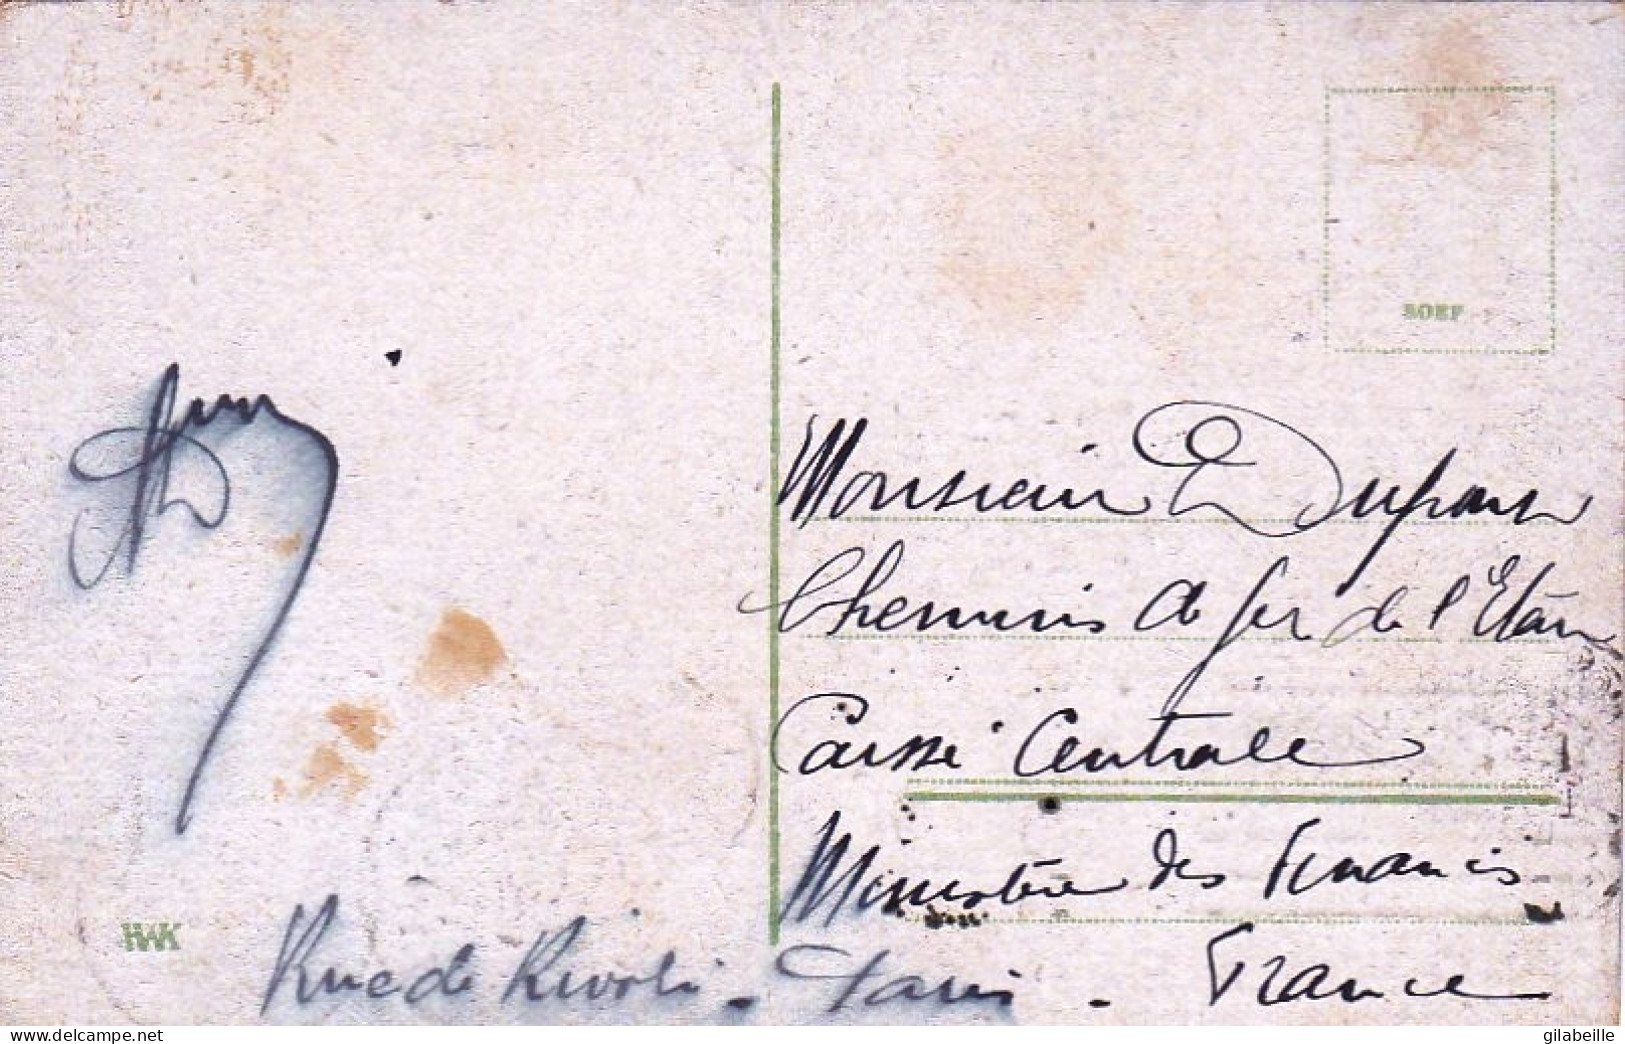 BOEF
Monsieur E Dupont
Chemins de fer de l'Etat
Caisse Centrale
Ministère des Finances
Rue de Rivoli - Paris - France
HWK
delcampe.net
gilabeille